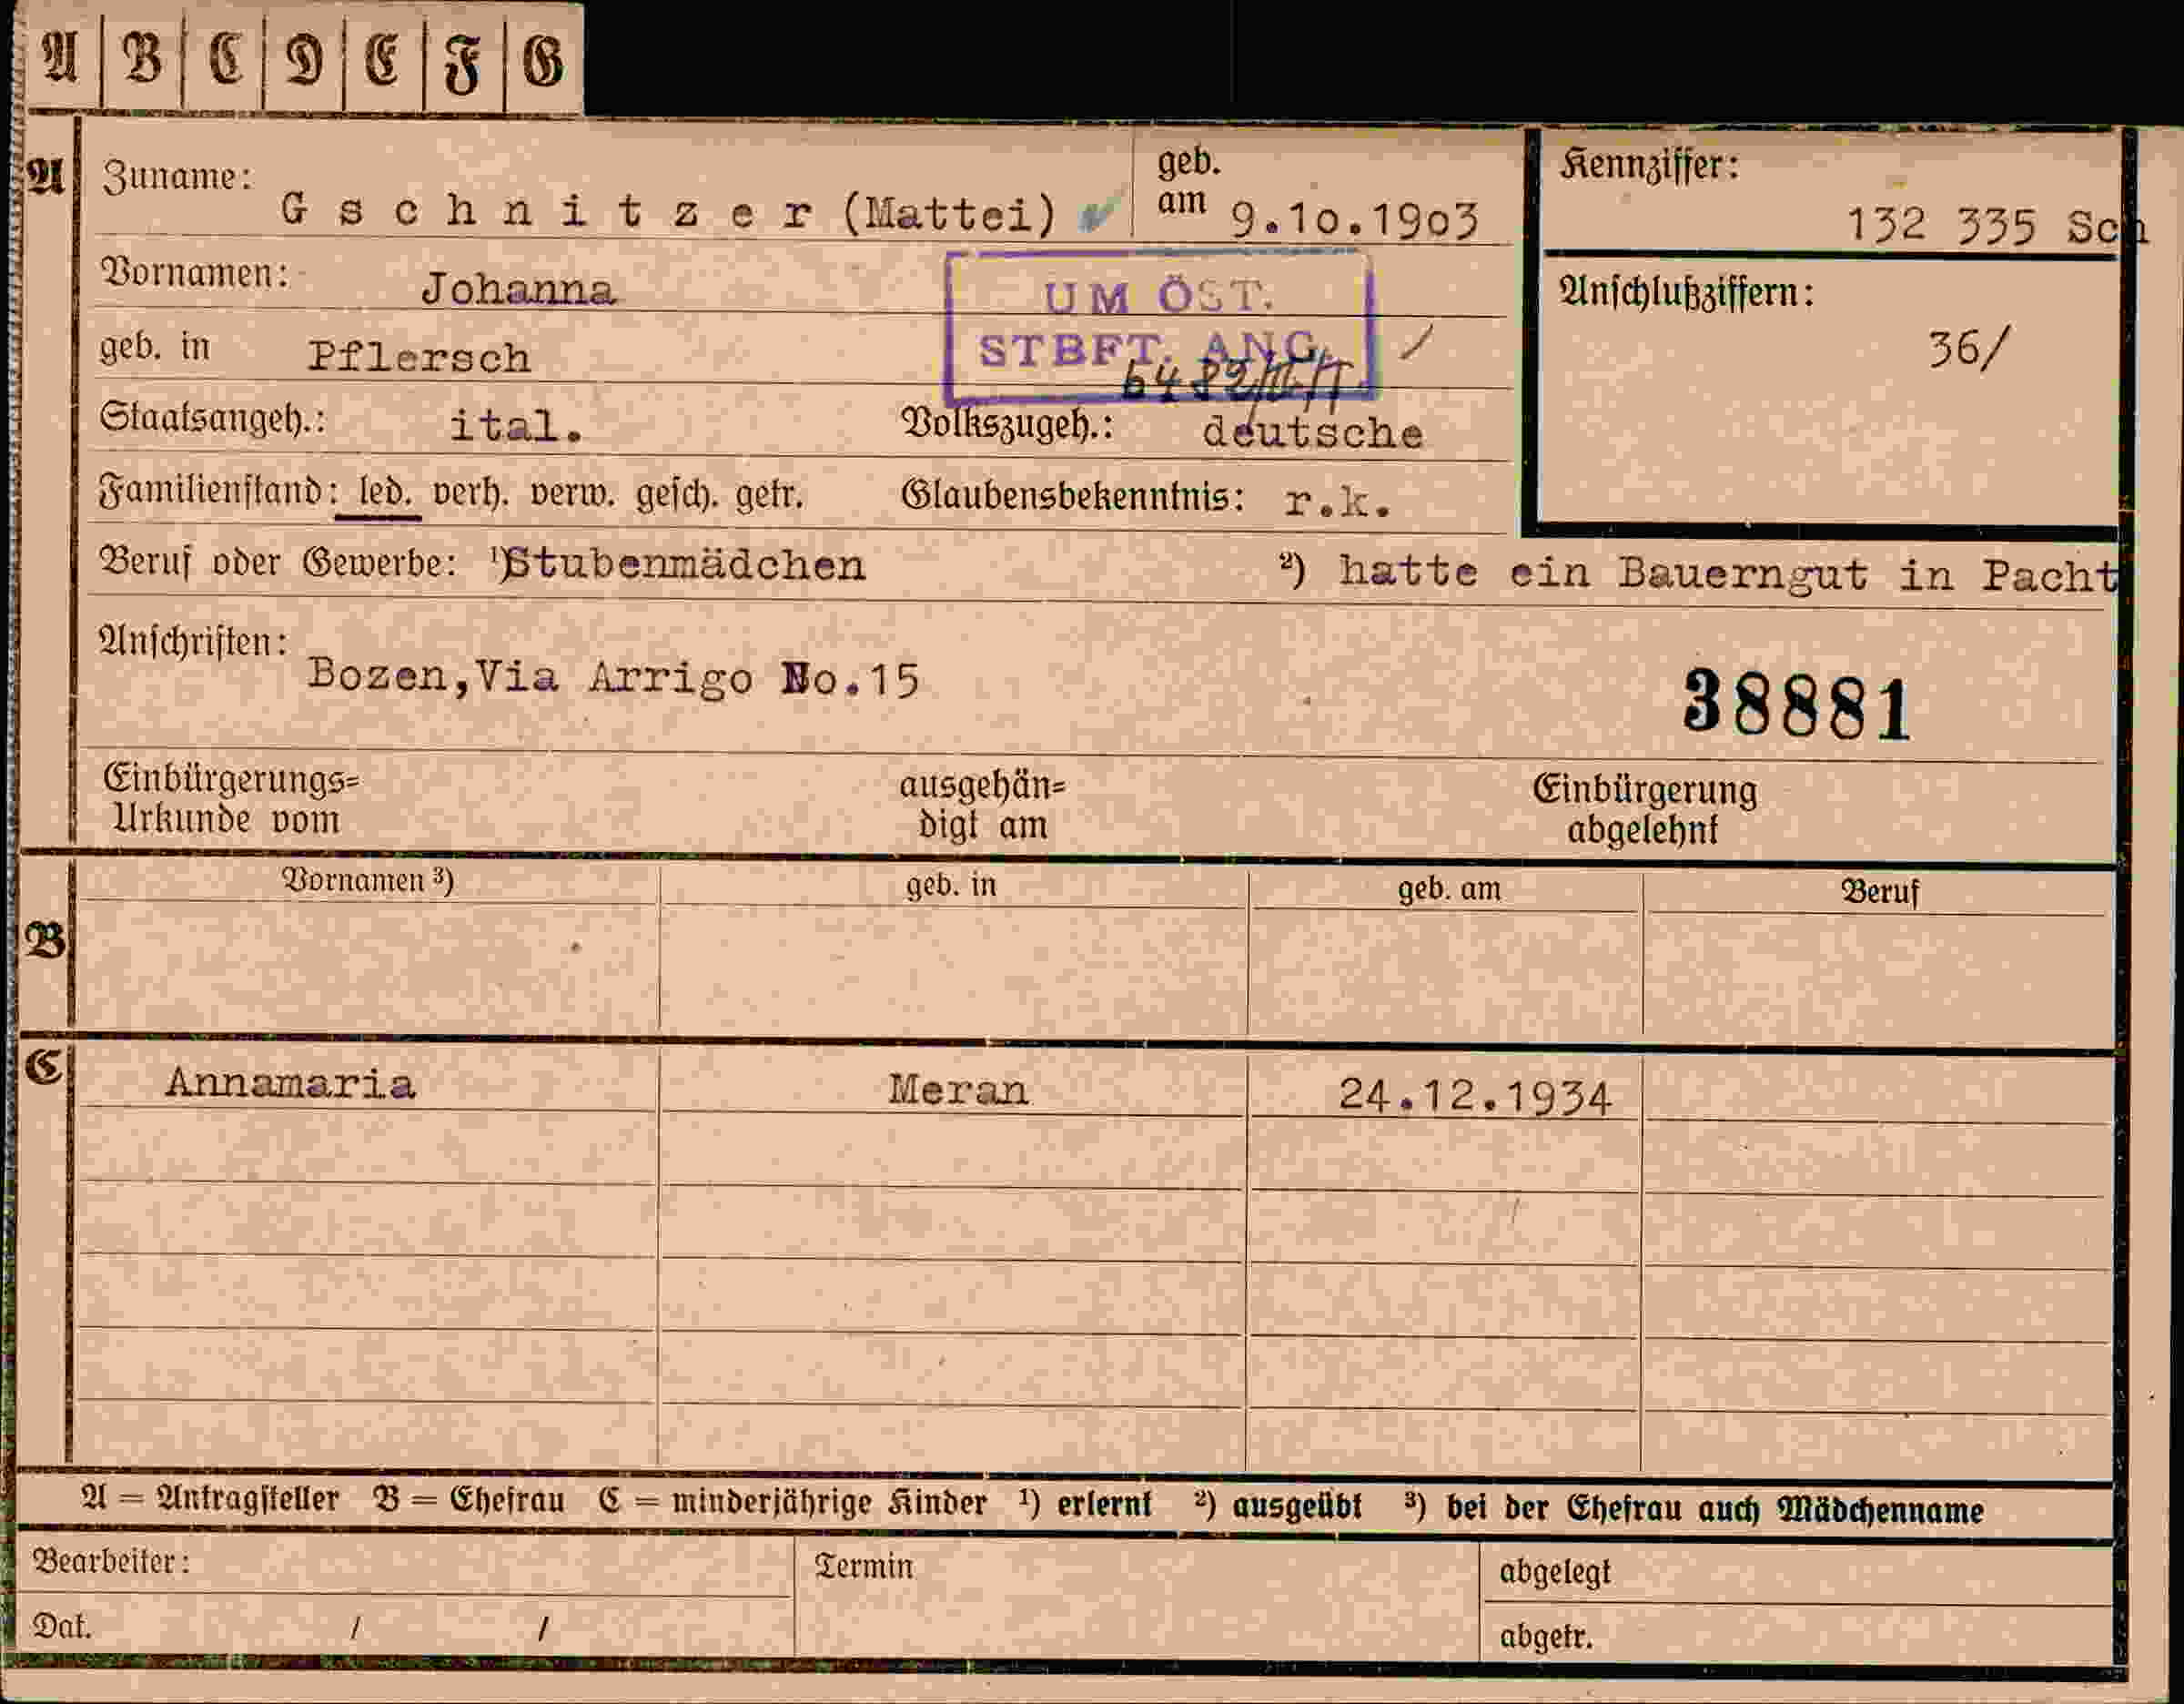 A B C D E F G
A Zuname: Gschnitzer (Mattei) geb. am 9.10.1903 Kennziffer: 132 335 Sch
Vornamen: Johanna UM ÖST. Anschlußziffern:
geb. in Pflersch STBFT. ANG. / 36/
Staatsangeh.: ital. Volkszugeh.: deutsche
Familienstand: led. verh. verw. gesch. getr. Glaubensbekenntnis: r.k.
Beruf oder Gewerbe: ¹) Stubenmädchen ²) hatte ein Bauerngut in Pacht
Anschriften:
Bozen,Via Arrigo No.15 38881
Einbürgerungs= ausgehän= Einbürgerung
Urkunde vom digt am abgelehnt
Vornamen ³) geb. in geb. am Beruf
B
C Annamaria Meran 24.12.1934
A = Antragsteller B = Ehefrau C = minderjährige Kinder ¹) erlernt ²) ausgeübt ³) bei der Ehefrau auch Mädchenname
Bearbeiter: Termin abgelegt
Dat. / / abgetr.